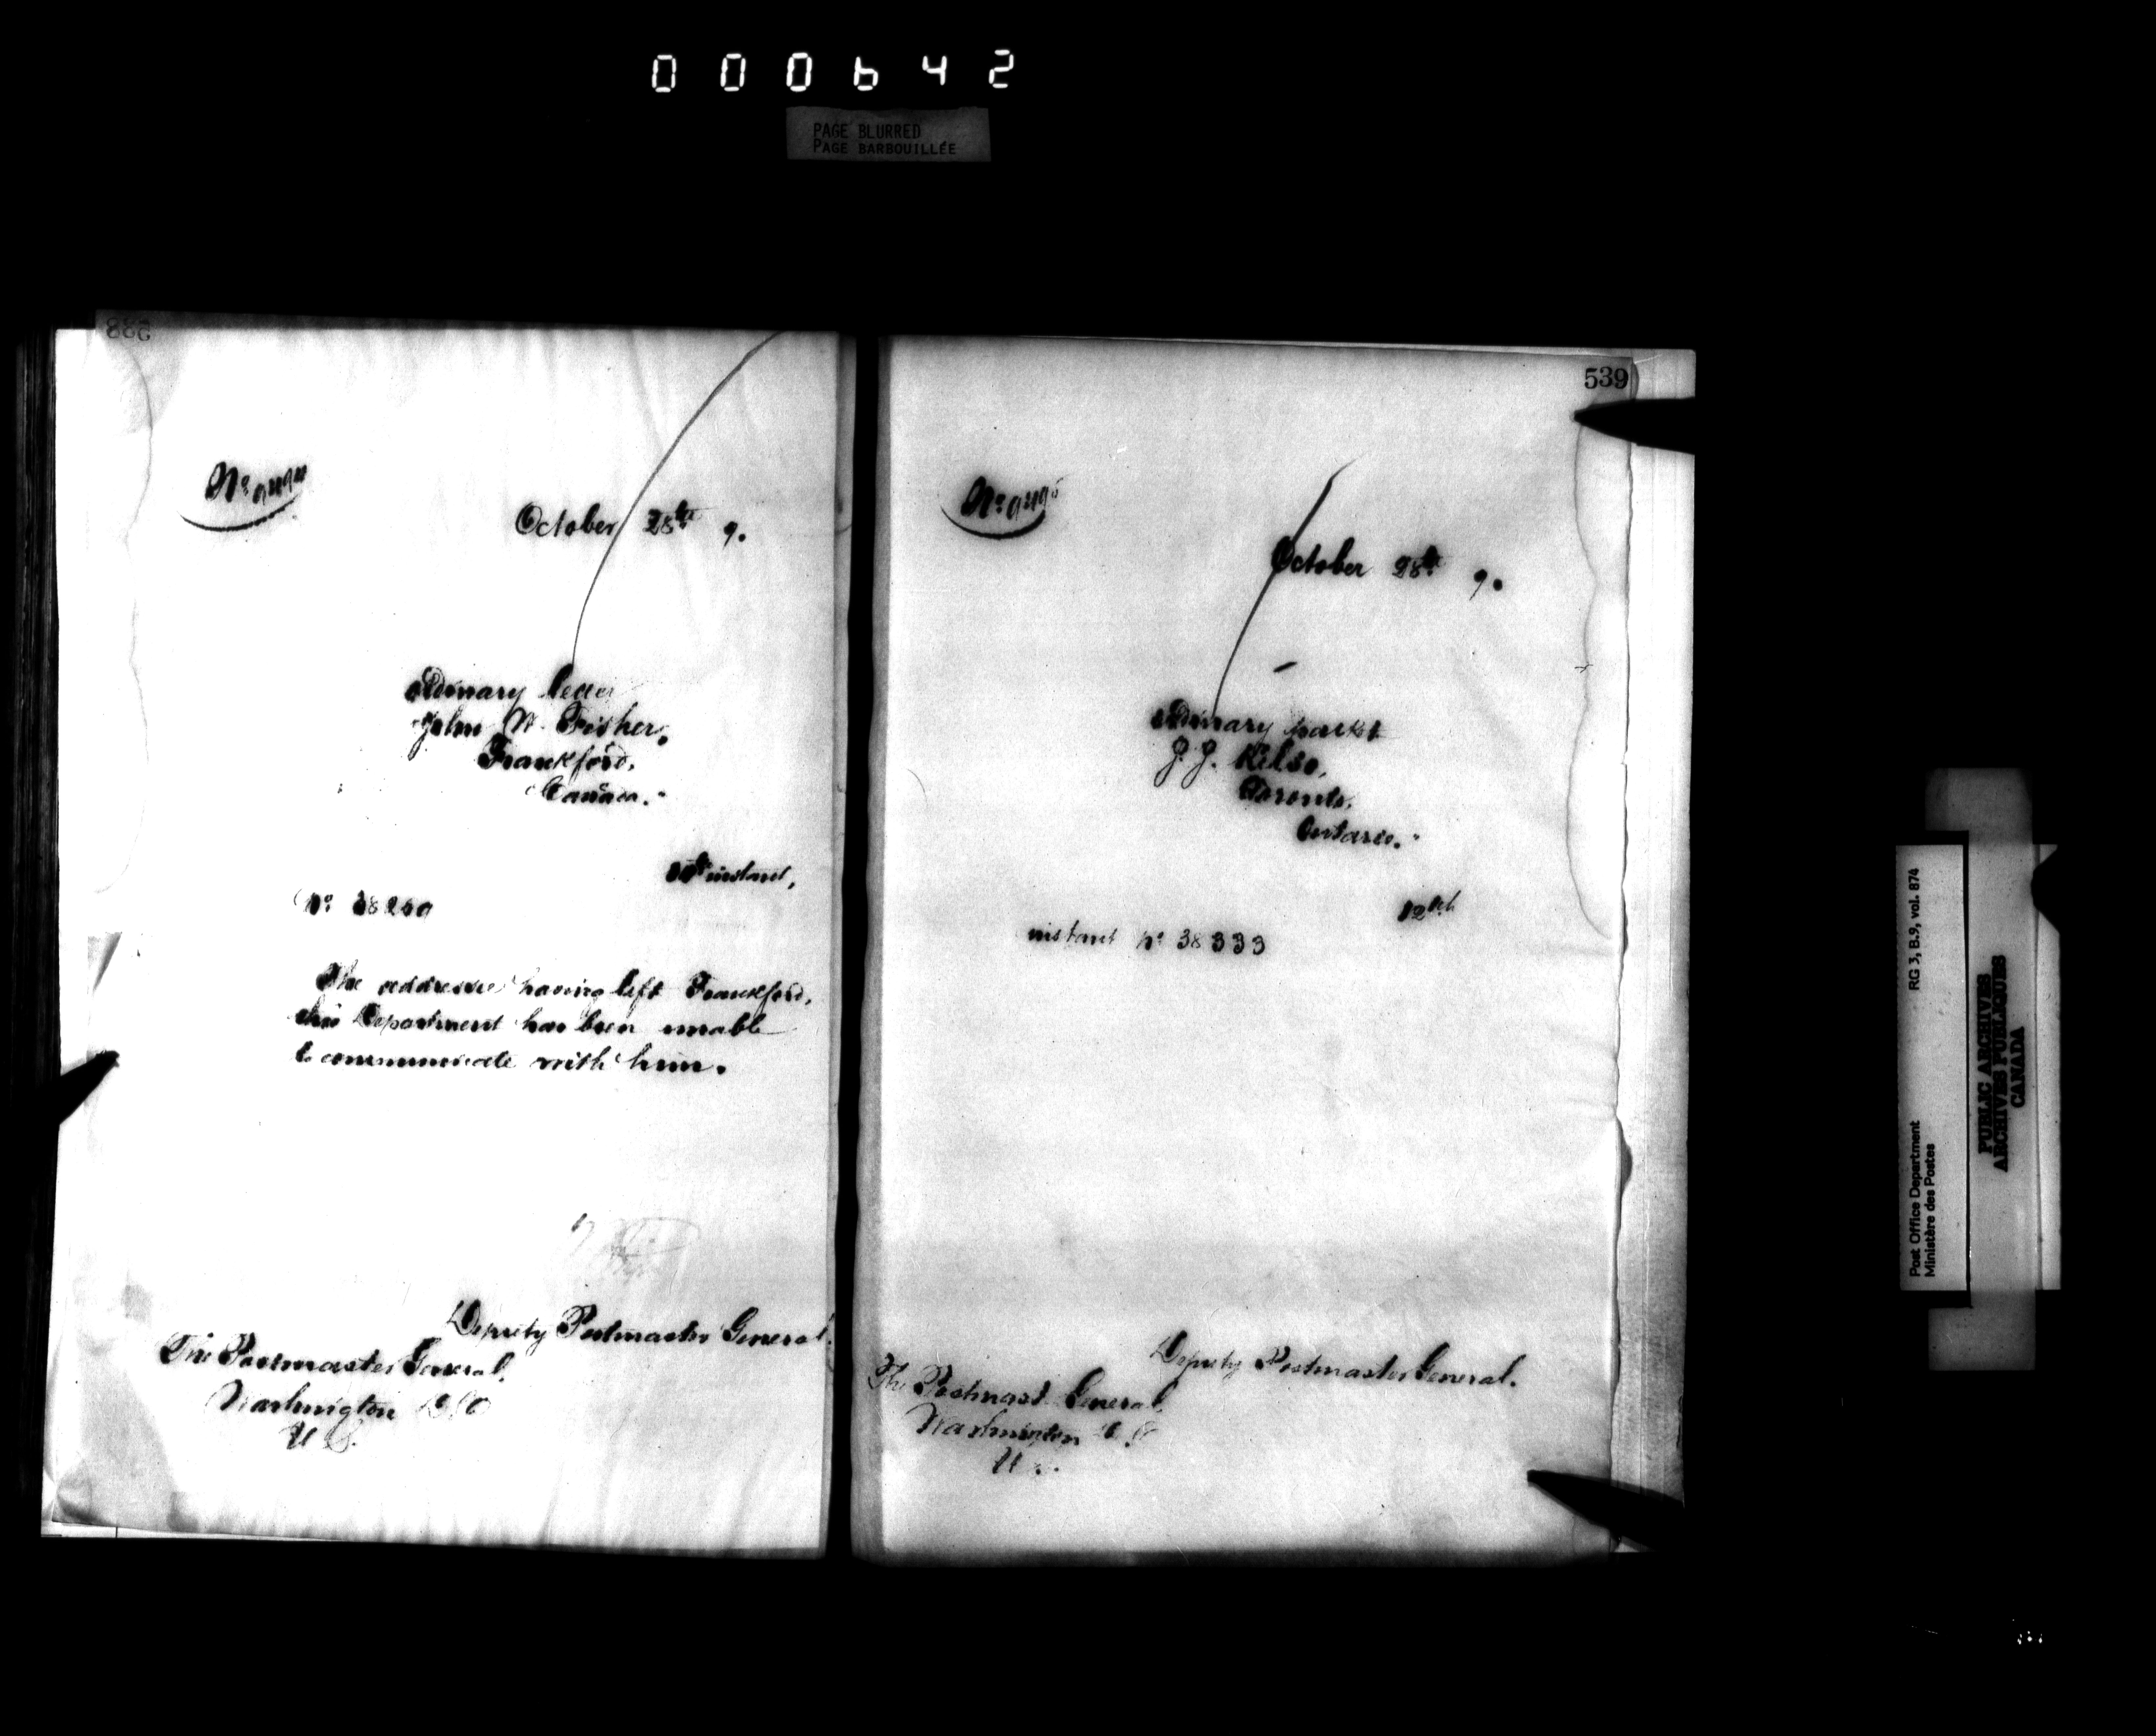 000642
PAGE BLURRED
PAGE BARBOUILLÉE
538
No
October 28th 9.
ordinary letter
John W. Fisher,
Frankford,
Canada."
instant,
No 38260
The addressee having left Frankford,
this Department has been unable
to communicate with him.
Deputy Postmaster General.
The Postmaster General,
Washington D.C.
U.S.
539
No
October 28th 9.
ordinary packet
J. J. Kelso,
Toronto,
Ontario."
12th
instant No 38333
Deputy Postmaster General.
The Postmast General,
Washington D.C.
U
RG 3, B.9, vol. 874
Post Office Department
Ministère des Postes
PUBLIC ARCHIVES
ARCHIVES PUBLIQUES
CANADA